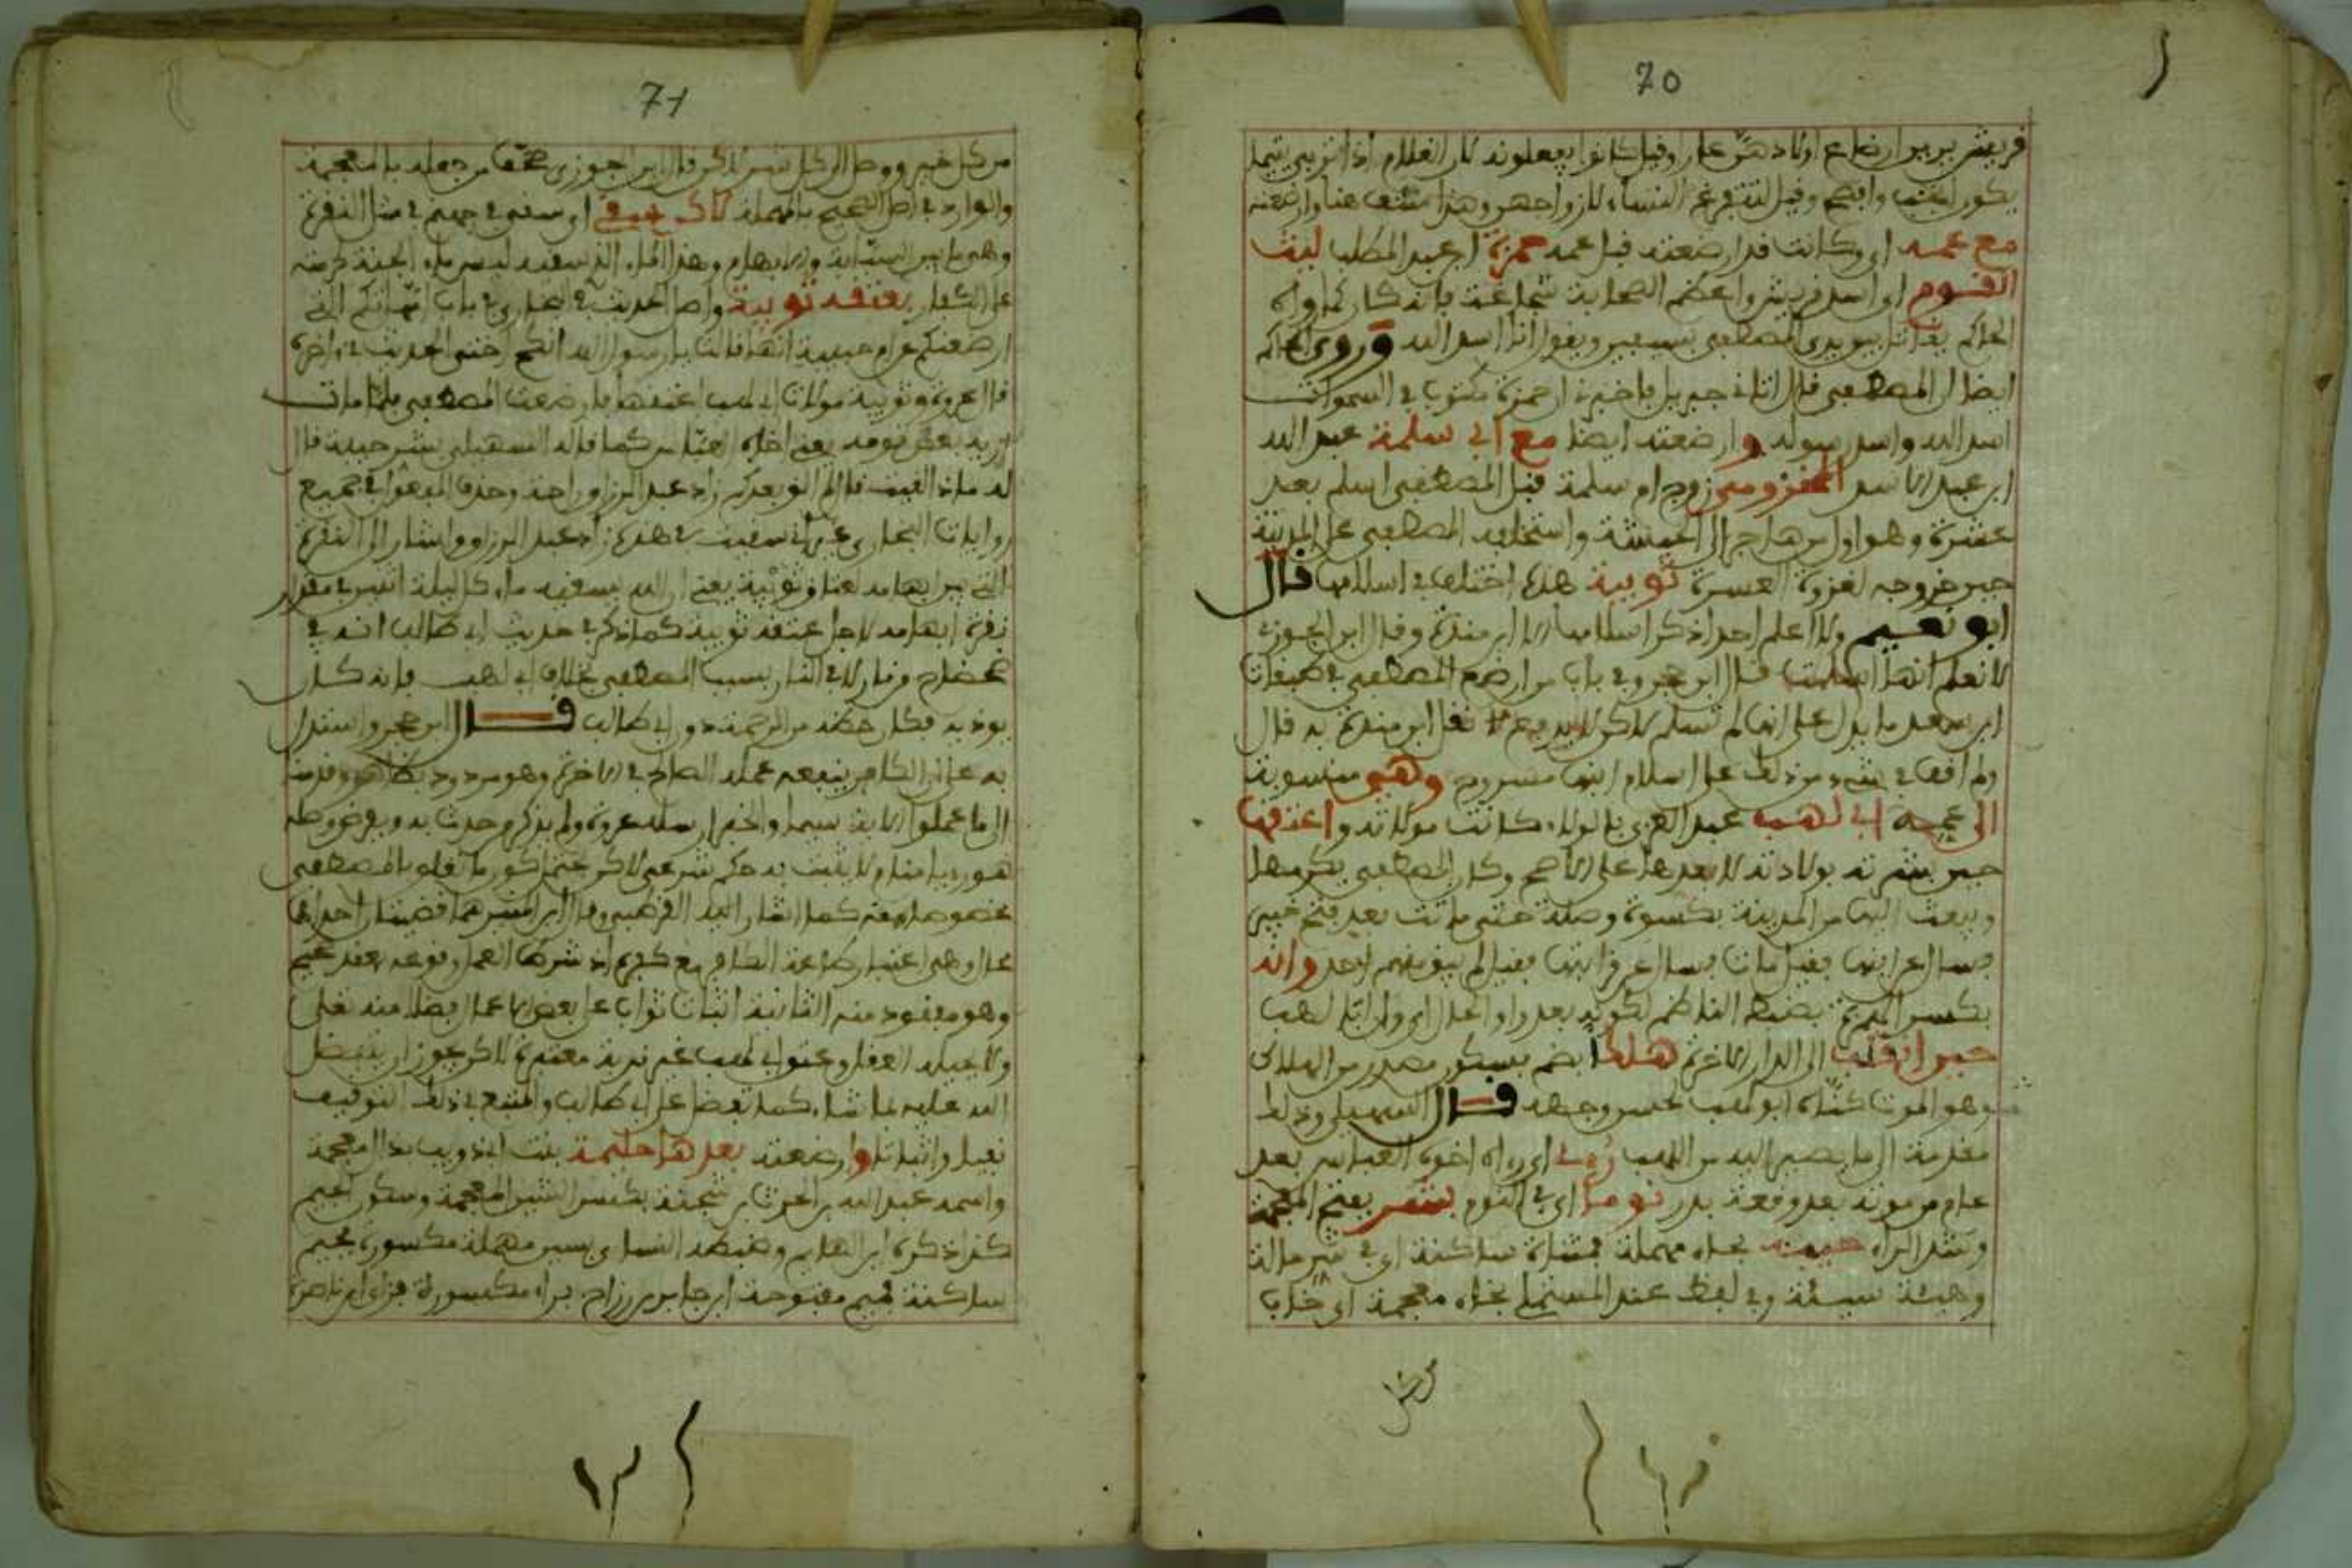 70
قريش يرين ارضاع اولادهن عار وقيل كانوا يفعلونه لان الغلام اذا تربى يتيما
يكون انجب وافصح وقيل لتتفرغ النساء لازواجهن وهذا منتف هنا وارضعته
مع عمه اي وكانت قد ارضعته قبل عمه حمزة ابن عبد المطلب ليث
القوم اي اسد قريش واعظم الصحابة شجاعة فانه كان كما رواه
الحاكم يقاتل بين يدي المصطفى بسيفين ويقول انا اسد الله وروى الحاكم
ايضا ان المصطفى قال اتاني جبريل فاخبرني ان حمزة مكتوب في السموات
اسد الله واسد رسوله وارضعته ايضا مع ابي سلمة عبد الله
ابن عبد الاسد المخزومي زوج ام سلمة قبل المصطفى اسلم بعد
عشرة وهو اول من هاجر الى الحبشة واستخلفه المصطفى على المدينة
حين خروجه لغزوة العسرة ثويبة هذه اختلف في اسلامها قال
ابو نعيم ولا اعلم احدا ذكر اسلامها الا ابن مندة وقال ابن الجوزي
لا نعلم انها اسلمت قال ابن حجر وفي باب من ارضع المصطفى في طبقات
ابن سعد ما يدل على انها لم تسلم لاكن لا يدفع نقل ابن مندة به قال
ولم اقف في شيء من ذلك على اسلام ابنها مسروح وهي منسوبة
الى عمه ابي لهب عبد العزى بالولاء كانت مولاته واعتقها
حين بشرته بولادته لا بعدها على الاصح وكان المصطفى يكرمها
ويبعث اليها من المدينة بكسوة وصلة حتى ماتت بعد فتح خيبر
فسال عن ابنها فقيل مات فسال عن قرابتها فقيل لم يبق منهم احد وانه
بكسر الهمزة بضبط الناظم لكونه بعد واو الحال اي وان ابا لهب
حين انقلب الى الدار الاخرة هلكا بضم فسكون مصدر من الهلاك
وهو الموت كناه ابو لهب لحسن وجهه قال السهيلي وذلك
مقدمة الى ما يصير اليه من اللهب رءي اي راه اخوه العباس بعد
عام من موته بعد وقعة بدر نوما اي في النوم بشر بفتح المعجمة
وشد الراء حيبة بحاء مهملة فمثناة ساكنة اي في شر حالة
وهيئة سيئة وفي لفظ عند المستملي بخاء معجمة اي خاب
من كل
71
من كل خير ووصل الى كل شر لاكن قال ابن الجوزي صحف من جعله بالمعجمة
والوارد في اصل الصحيح بالمهملة لاكن سقي اي سقي في جهنم في مثل النقرة
وهي ما بين السبابة والابهام وهذا الماء الذي سقيه ليس ماء الجنة لحرمته
على الكفار بعتقه ثويبة واصل الحديث في البخاري في باب امهاتكم التي
ارضعنكم عن ام حبيبة انها قالت يا رسول الله انكح اختي الحديث وفي اخره
قال عروة وثويبة مولاة ابي لهب اعتقها فارضعت المصطفى فلما مات
اريه بعض قومه يعني اخاه العباس كما قاله السهيلي بشر حيبة قال
له ماذا لقيت قال لم الق بعدكم زاد عبد الرزاق راحة وحذف المفعول في جميع
روايات البخاري غير اني سقيت في هذه زاد عبد الرزاق واشار الى النقرة
التي بين ابهامه بعتاقي ثويبة يعني ان الله يسقيه ماء كل ليلة اثنين في مقدار
نقرة ابهامه لاجل عتقه ثويبة كما ذكر في حديث ابي طالب انه في
ضحضاح من نار لا في النار بسبب المصطفى بخلاف ابي لهب فانه كان
يوذيه فكان حظه من الرحمة دون ابي طالب قال ابن حجر واستدل
به على ان الكافر ينفعه عمله الصالح في الاخرة وهو مردود بظاهر وقدمنا
الى ما عملوا الاية سيما والخبر ارسله عروة ولم يذكر من حدث به وبفرض وصله
هو رؤيا منام لا يثبت به حكم شرعي لاكن يحتمل كون ما تعلق بالمصطفى
مخصوصا منه كما اشار اليه القرطبي وقال ابن المنير هما قضيتان احداهما
محال وهي اعتبار طاعة الكافر مع كفره اذ شرط العمل وقوعه بقصد صحيح
وهو مفقود منه الثانية اثبات ثواب على بعض الاعمال فضلا منه تعالى
ولا يحيله العقل وعتق ابي لهب غير قربة معتبرة لاكن يجوز ان يتفضل
الله عليه بما شاء كما تفضل على ابي طالب والمتبع في ذلك التوقيف
نفيا واثباتا وارضعته بعدها حليمة بنت ابي ذويب بذال معجمة
واسمه عبد الله بن الحرث بن شجنة بكسر الشين المعجمة وسكون الجيم
كذا ذكره ابن الهايم وضبطه النسائي بسين مهملة مكسورة فجيم
ساكنة فميم مفتوحة ابن جابر بن رزام براء مكسورة فزاي ابن ناصرة